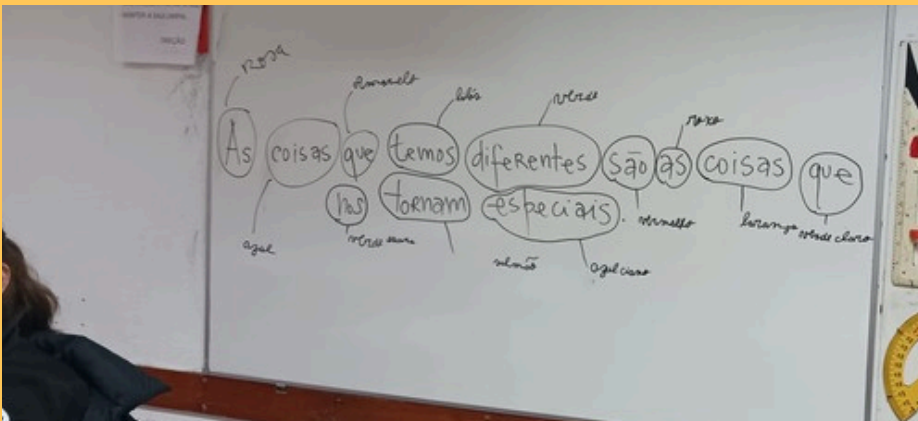 rosa
amarelo
lilás
verde
roxo
As coisas que temos diferentes são as coisas que
nos tornam especiais.
azul
verde escuro
salmão
azul ciano
vermelho
laranja
verde claro